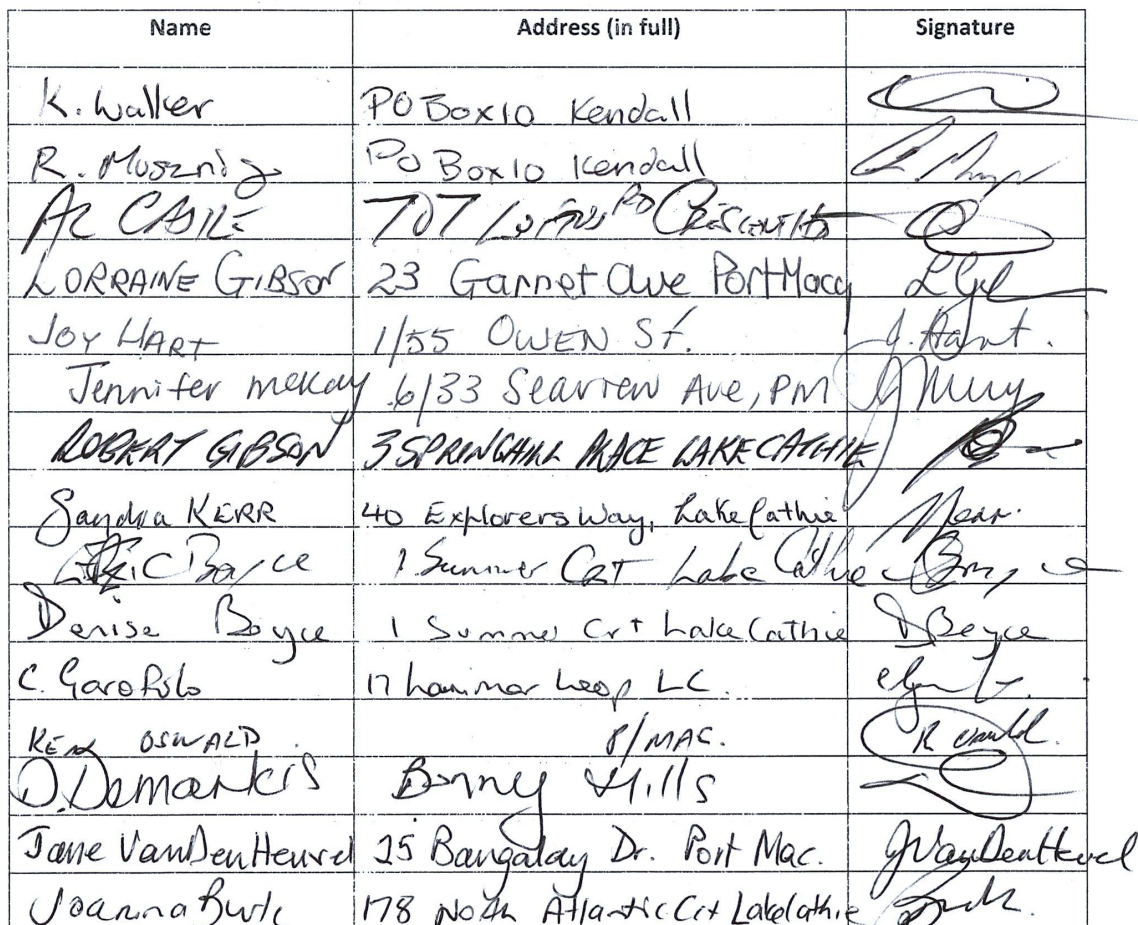 Name Address (in full) Signature
K. Walker PO Box 10 Kendall
R. PO Box 10 Kendall
AL CASTLE 707 RD
LORRAINE GIBSON 23 Garnet Ave Port Macq L G
JOY HART 1/55 OWEN St. J. Hart.
Jennifer McKay 6/33 Ave, PM
ROBERT GIBSON 3 SPRINGHILL PLACE LAKE CATHIE
Sandra KERR 40 Explorers Way, Lake Cathie Kerr.
Eric Boyce 1 Summer CRT Lake Cathie Boyce
Denise Boyce 1 Summer Crt Lake Cathie D Boyce
C. Garofolo 17 Loop LC.
KEN OSWALD P/MAC.
D. Demarkis Bonny Hills
Jane VanDenHeuvel 25 Bangalay Dr. Port Mac. JVanDenHeuvel
Joanna Burk 178 North Atlantic Crt Lake Cathie